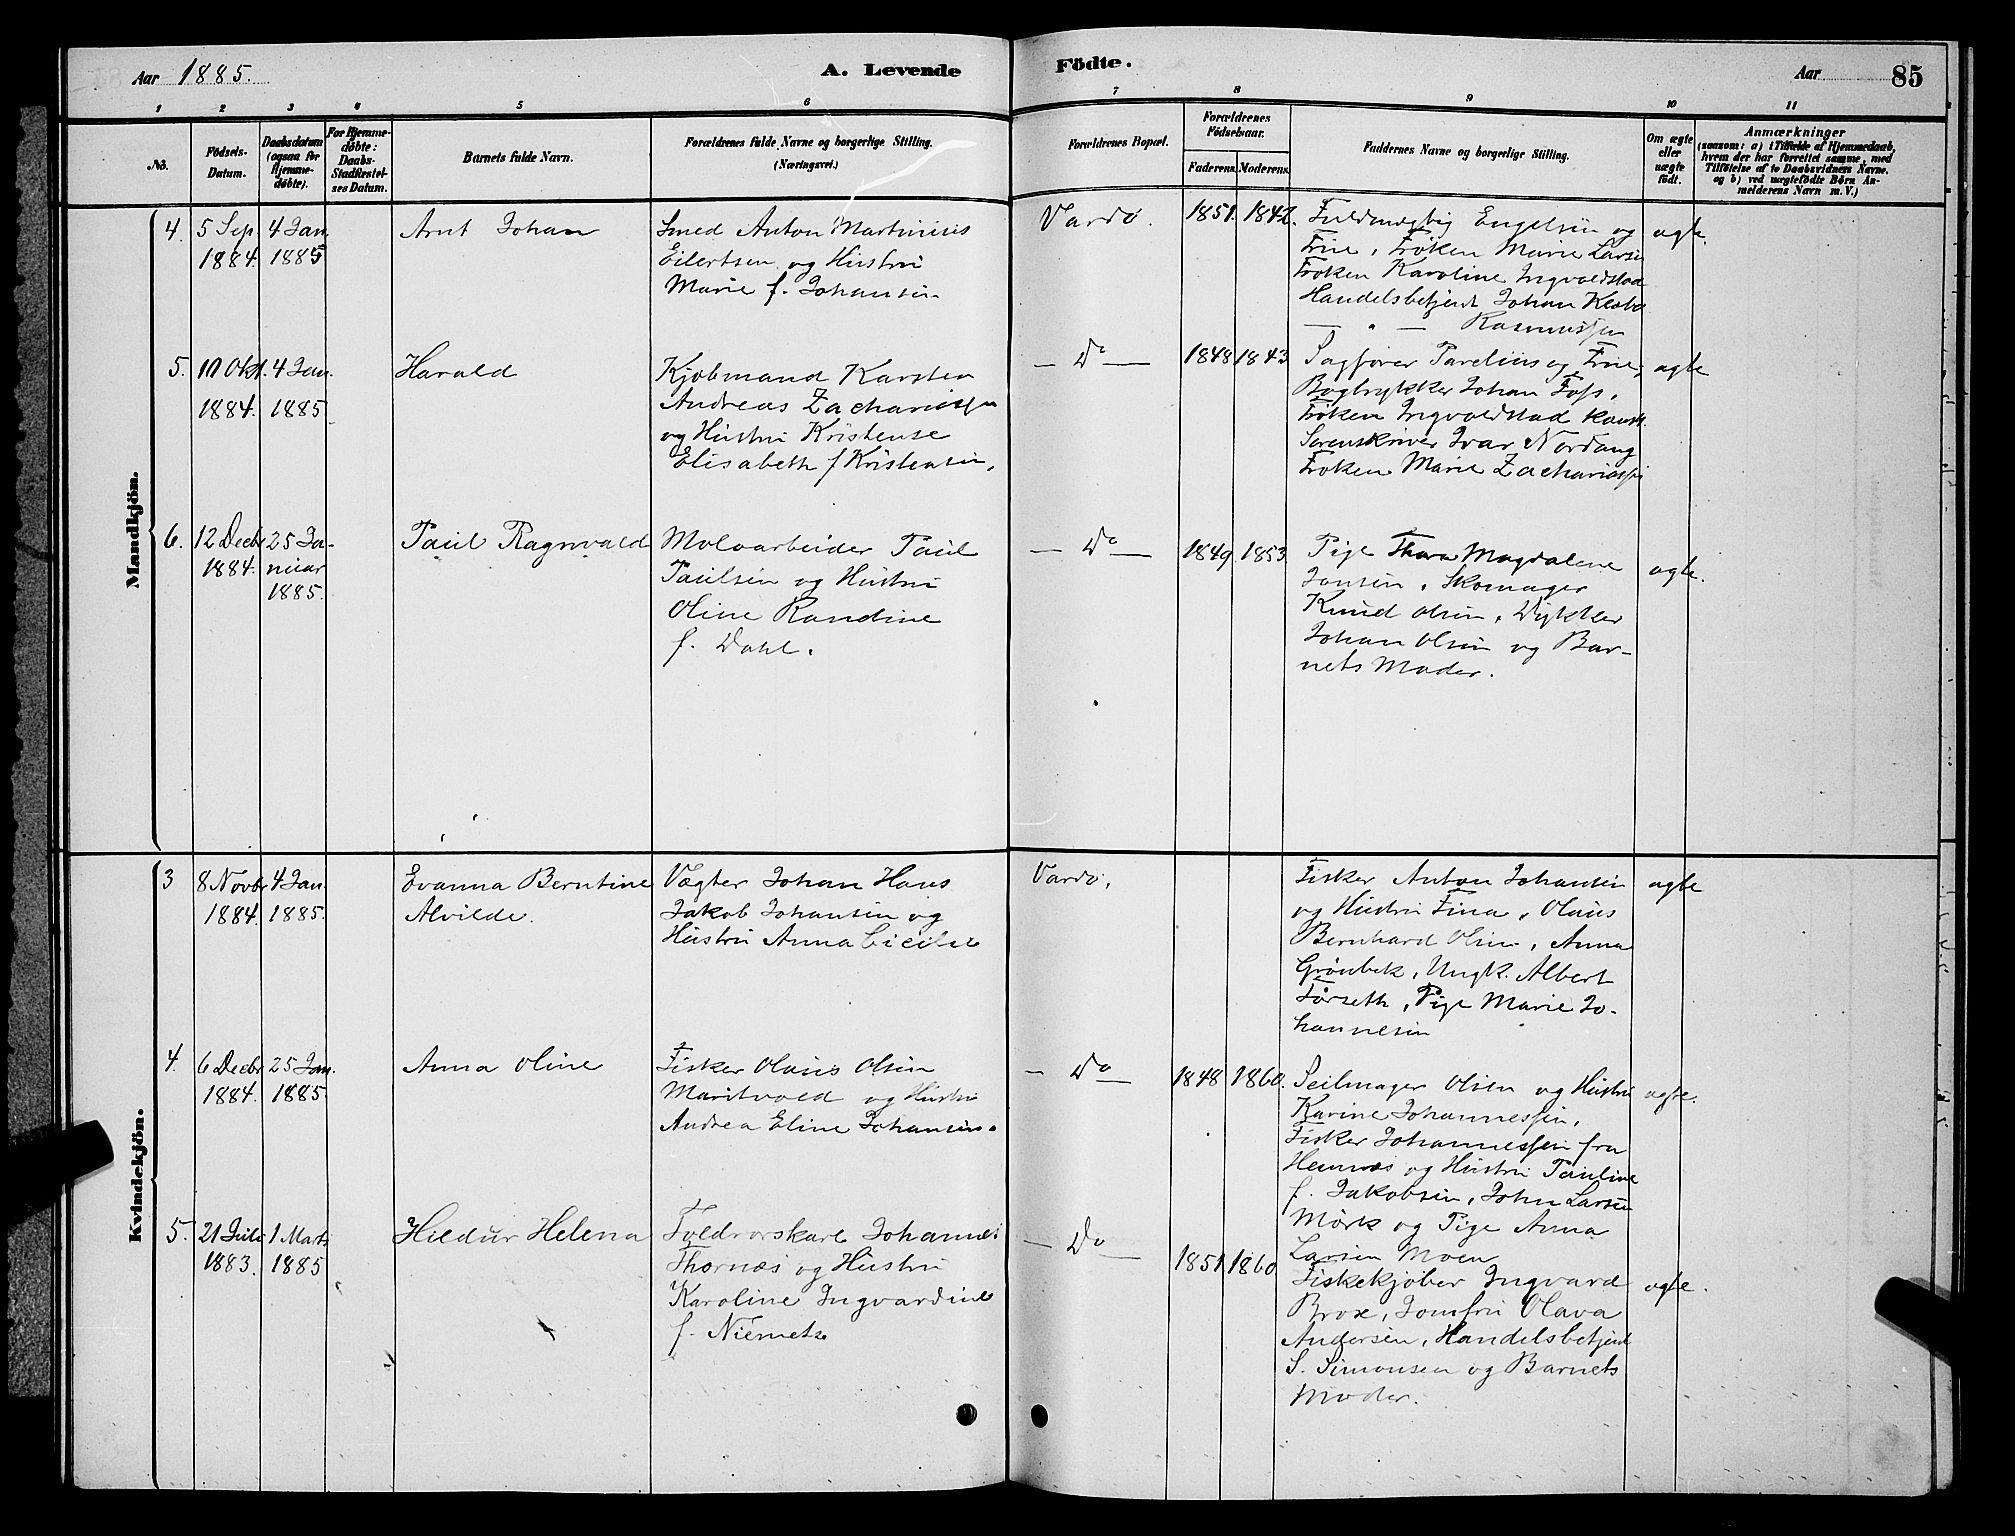 Aar 1885.
A. Levende
Födte.
Aar
85
1 2 3 4 5 6 7 8 9 10 11
No.
Födsels-
Datum.
Daabsdatum
(ogsaa for
Hjemme-
döbte).
For Hjemme-
döbte:
Daabs-
Stadfæstel-
ses Datum.
Barnets fulde Navn.
Forældrenes fulde Navne og borgerlige Stilling.
(Næringsvei.)
Forældrenes Bopæl.
Forældrenes
Födselsaar.
Faderens.
Moderens.
Faddernes Navne og borgerlige Stilling.
Om ægte
eller
uægte
födt.
Anmærkninger
(saasom: a) i Tilfælde af Hjemmedaab,
hvem der har forrettet samme, med
Tilföielse af to Daabsvidners Navne.
og b) ved uægtefödte Börn An-
melderens Navn m. V.)
Mandkjön.
4. 5 Sep 4 Jan
1884. 1885
Arnt Johan
Smed Anton Martinius
Eilertsen og Hustru
Marie f. Johansen
Vardø.
1851. 1842.
Fuldmægtig Engelsen og
Frue, Frøken Marie Larsen
Frøken Karoline Ingvaldstad
Handelsbetjent Johan
— " — Rasmussen
ægte.
5. 10 Okt. 4 Jan.
1884. 1885
Harald
Kjøbmand Karsten
Andreas Zachariassen
og Hustru Kristense
Elisabeth f Kristensen.
— Do —
1848 1843
Sagfører Parelius og Frue,
Bogtrykker Johan Foss,
Frøken Ingvaldstad konst.
Sorenskriver Ivar Nordang
Frøken Marie Zachariassen
ægte
6. 12 Decbr 25 Ja-
1884. nuar
1885.
Paul Ragnvald
Moloarbeider Paul
Paulsen og Hustru
Oline Randine
f. Dahl.
— Do —
1849 1853
Pige Thora Magdalene
Jansen, Skomager
Knud Olsen, Dykker
Johan Olsen og Bar-
nets Moder.
ægte.
Kvindekjön.
3 8 Novbr 4 Jan
1884. 1885.
Evanna Berntine
Alvilde.
Vægter Johan Hans
Jakob Johansen og
Hustru Anna Cicilie
Vardø,
Fisker Anton Johansen
og Hustru Fina, Olaus
Bernhard Olsen, Anna
Grønbek, Ungk. Albert
Førseth, Pige Marie Jo-
hannesen
ægte
4. 6 Decbr 25 Jan.
1884. 1885.
Anna Oline
Fisker Olaus Olsen
Maritvold og Hustru
Andrea Eline Johansen.
— Do —
1848 1860.
Seilmager Olsen og Hustru
Karine Johannessen,
Fisker Johannessen fra
Hemnæs og Hustru Pauline
f. Jakobsen, John Larsen
Mørk og Pige Anna
Larsen Moen
ægte.
5. 21 Juli 1 Marts
1883. 1885
Hildur Helena
Toldrorskarl Johannes
Thornæs og Hustru
Karoline Ingvardine
f. Niemets
— Do —
1851 1860
Fiskekjøber Ingvard
Brox, Jomfru Olava
Andersen, Handelsbetjent
S. Simonsen og Barnets
Moder.
ægte.